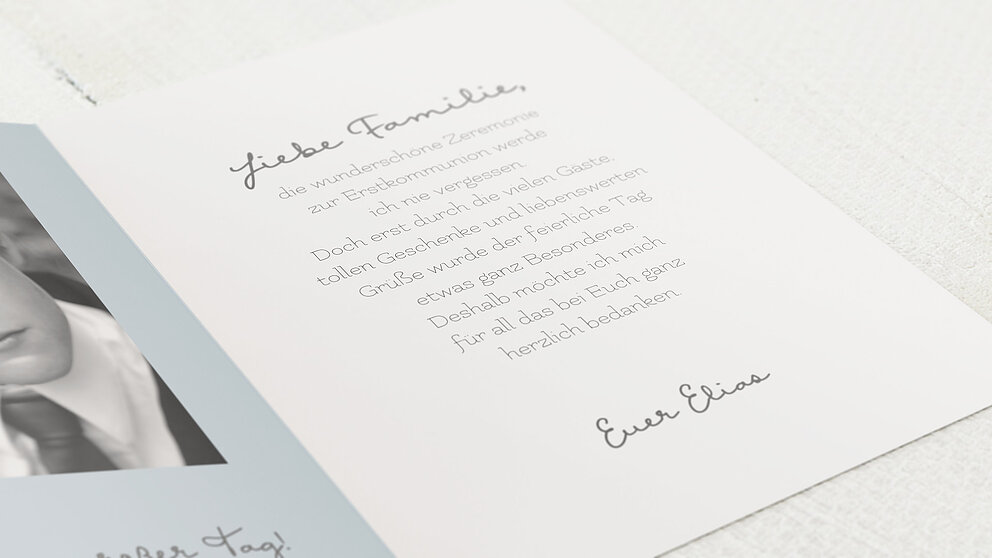 Liebe Familie,
die wunderschöne Zeremonie
zur Erstkommunion werde
ich nie vergessen.
Doch erst durch die vielen Gäste,
tollen Geschenke und liebenswerten
Grüße wurde der feierliche Tag
etwas ganz Besonderes.
Deshalb möchte ich mich
für all das bei Euch ganz
herzlich bedanken.
Euer Elias
Tag!